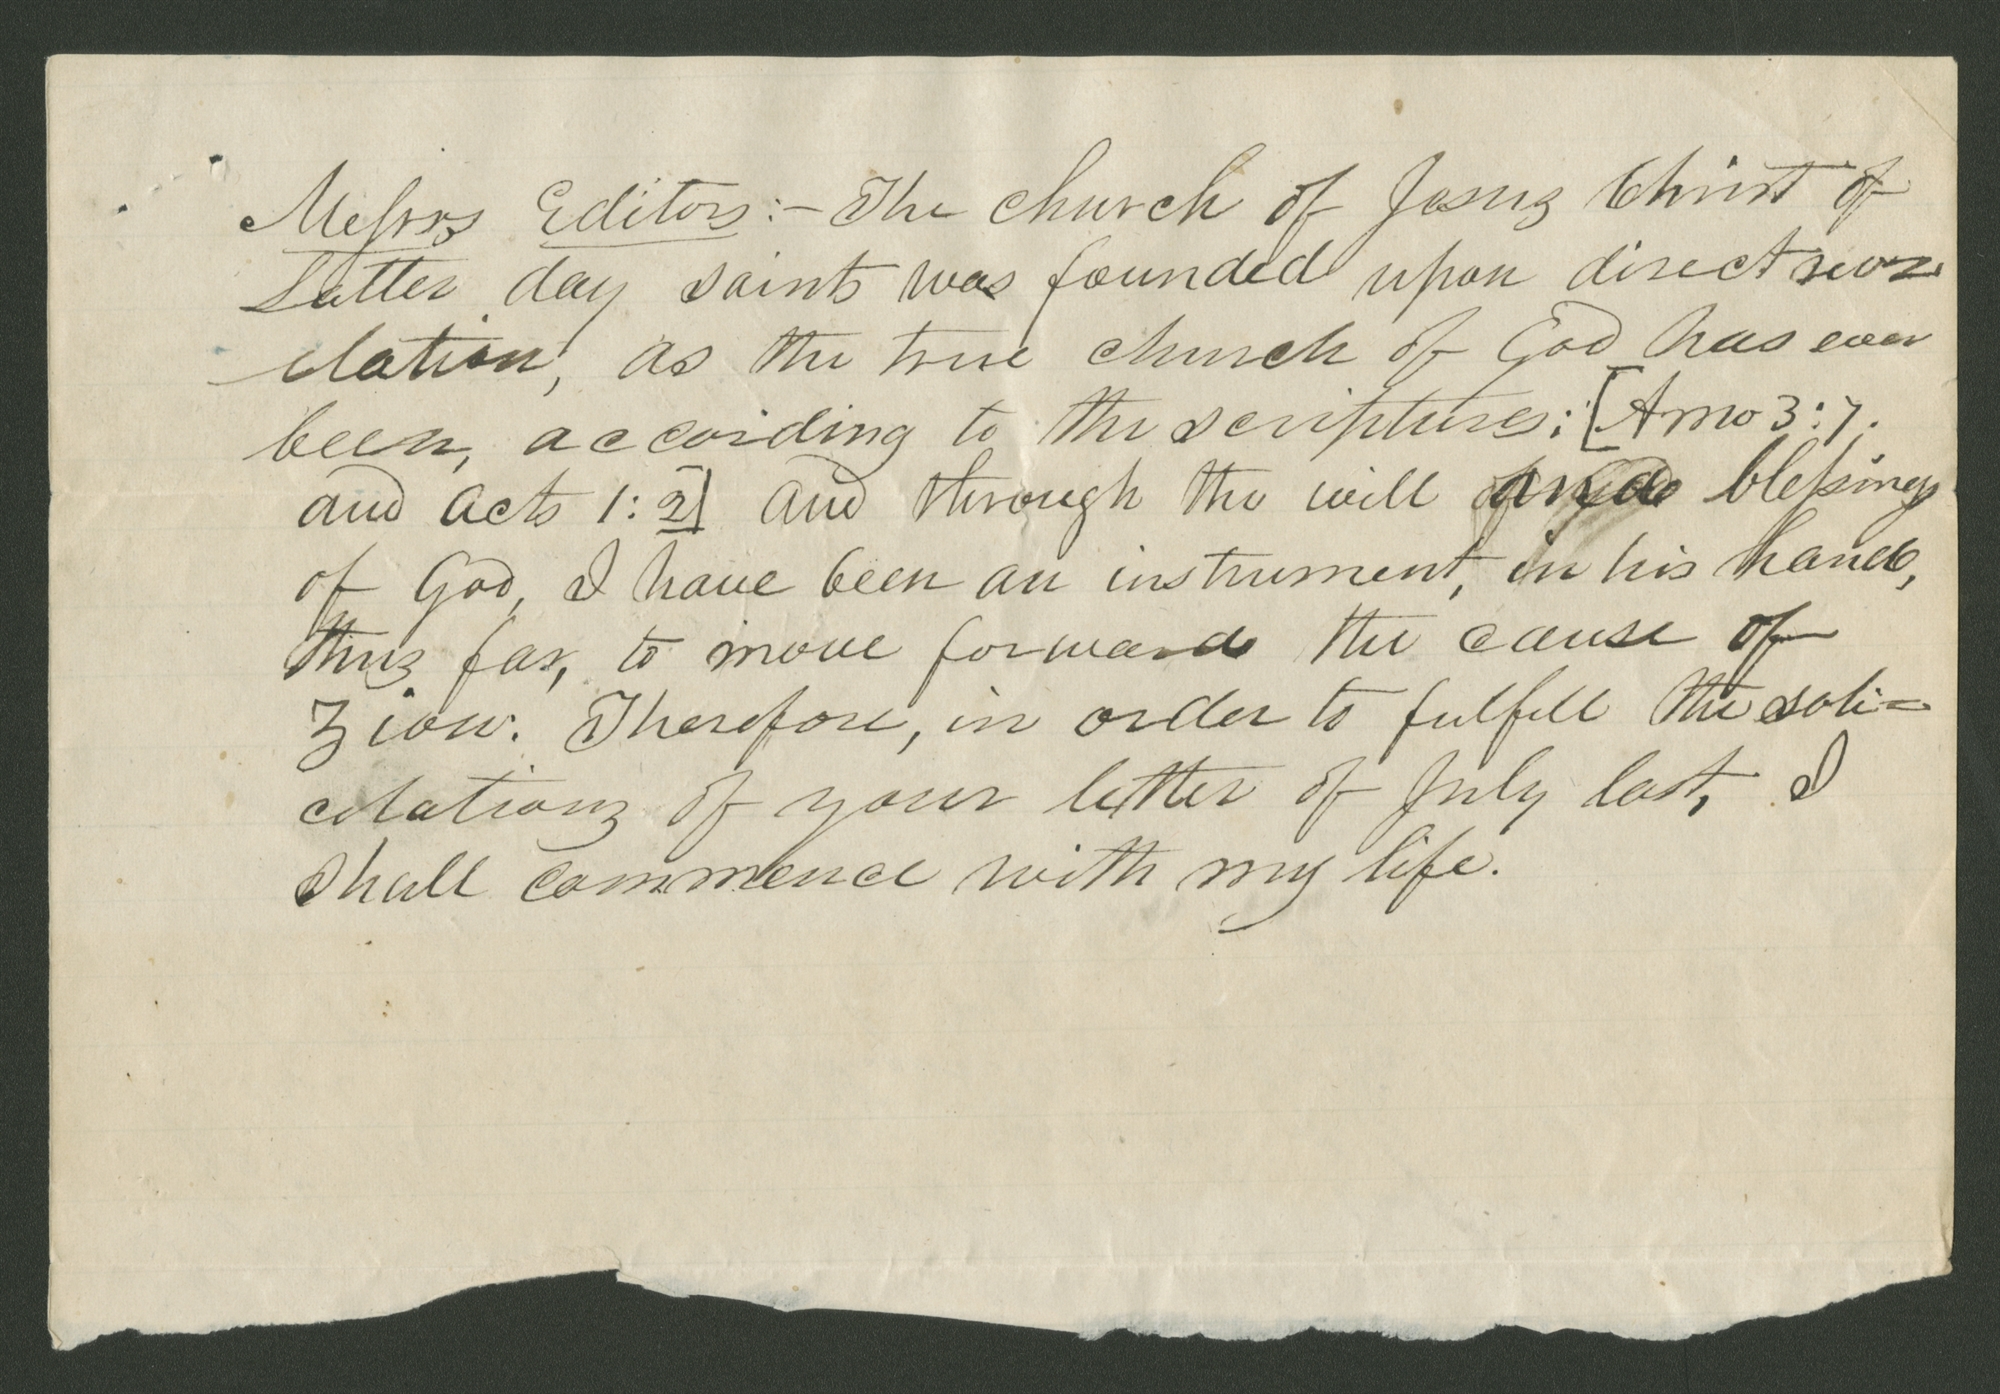 Messrs Editors:— The church of Jesus Christ of
Latter day saints was founded upon direct reve
elation, as the true church of God has ever
been, according to the scriptures; [Amo 3:7.
and Acts 1:2] and through the will and blessings
of God, I have been an instrument, in his hands,
thus far, to move forward the cause of
Zion. Therefore, in order to fulfill the soli=
citations of your letter of July last, I
shall commence with my life.